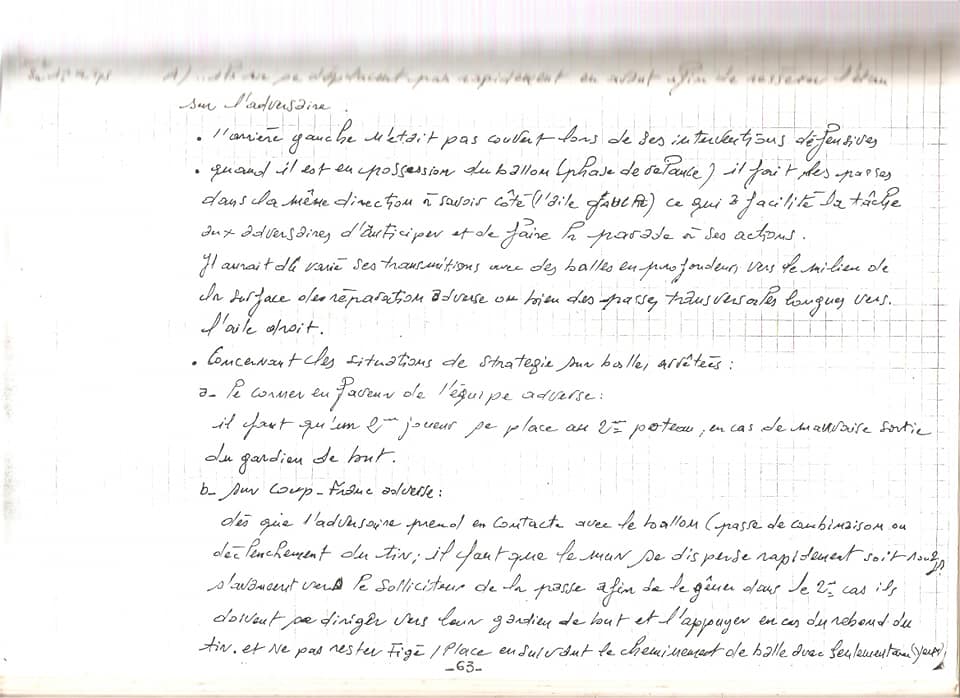 se déplacent pas rapidement en avant afin de resserrer l'étau
sur l'adversaire.
• l'arrière gauche n'était pas couvert lors de ses interventions défensives
• quand il est en possession du ballon (phase de relance) il fait des passes
dans la même direction à savoir côté (l'aile gauche) ce qui a facilité la tâche
aux adversaires d'anticiper et de faire la parade à ses actions.
Il aurait dû varié ses transmitions avec des balles en profondeur, vers le milieu de
la surface de réparation adverse ou bien des passes transversales longues vers.
l'aile droit.
• Concernant les situations de stratégie sur balles arrêtées :
a- Le corner en faveur de l'équipe adverse :
il faut qu'un 2ème joueur se place au 2ème poteau, en cas de mauvaise sortie
du gardien de but.
b- sur coup-Franc adverse :
dès que l'adversaire prend en contacte avec le ballon (passe de combinaison ou
déclenchement du tir; il faut que le mur se disperse rapidement soit
s'avancent vers le solliciteur de la passe afin de le gêner dans le 2ème cas ils
doivent se diriger vers leur gardien de but et l'appuyer en cas du rebond du
tir. et Ne pas rester Figé / Place en suivant le cheminement de balle avec seulement
-63-